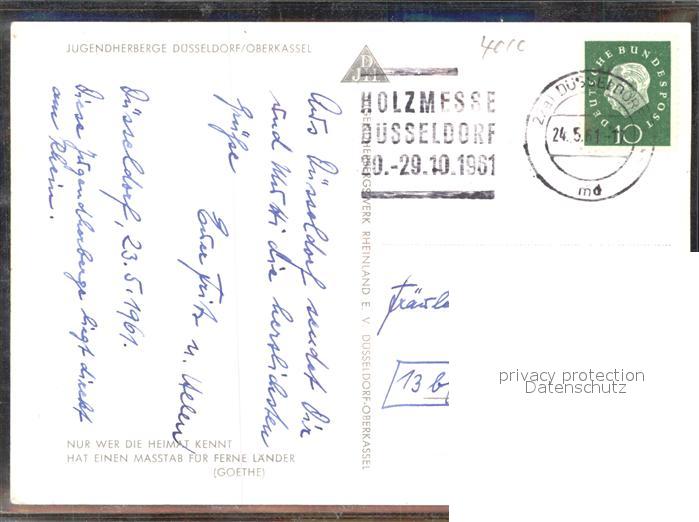 JUGENDHERBERGE DÜSSELDORF/OBERKASSEL
Aus Düsseldorf sendet Dir
und Mutti die herzlichsten
Grüße
Euer Fritz u. Helen
Düsseldorf, 23.5.1961.
Diese Jugendherberge liegt direkt
am Rhein.
NUR WER DIE HEIMAT KENNT
HAT EINEN MASSTAB FÜR FERNE LÄNDER
(GOETHE)
RHEINLAND E. V. DÜSSELDORF-OBERKASSEL
HOLZMESSE
DÜSSELDORF
20.-29.10.1961
DÜSSELDORF
24.5.61
md
DEUTSCHE BUNDESPOST
10
Fräule
13 b
privacy protection
Datenschutz